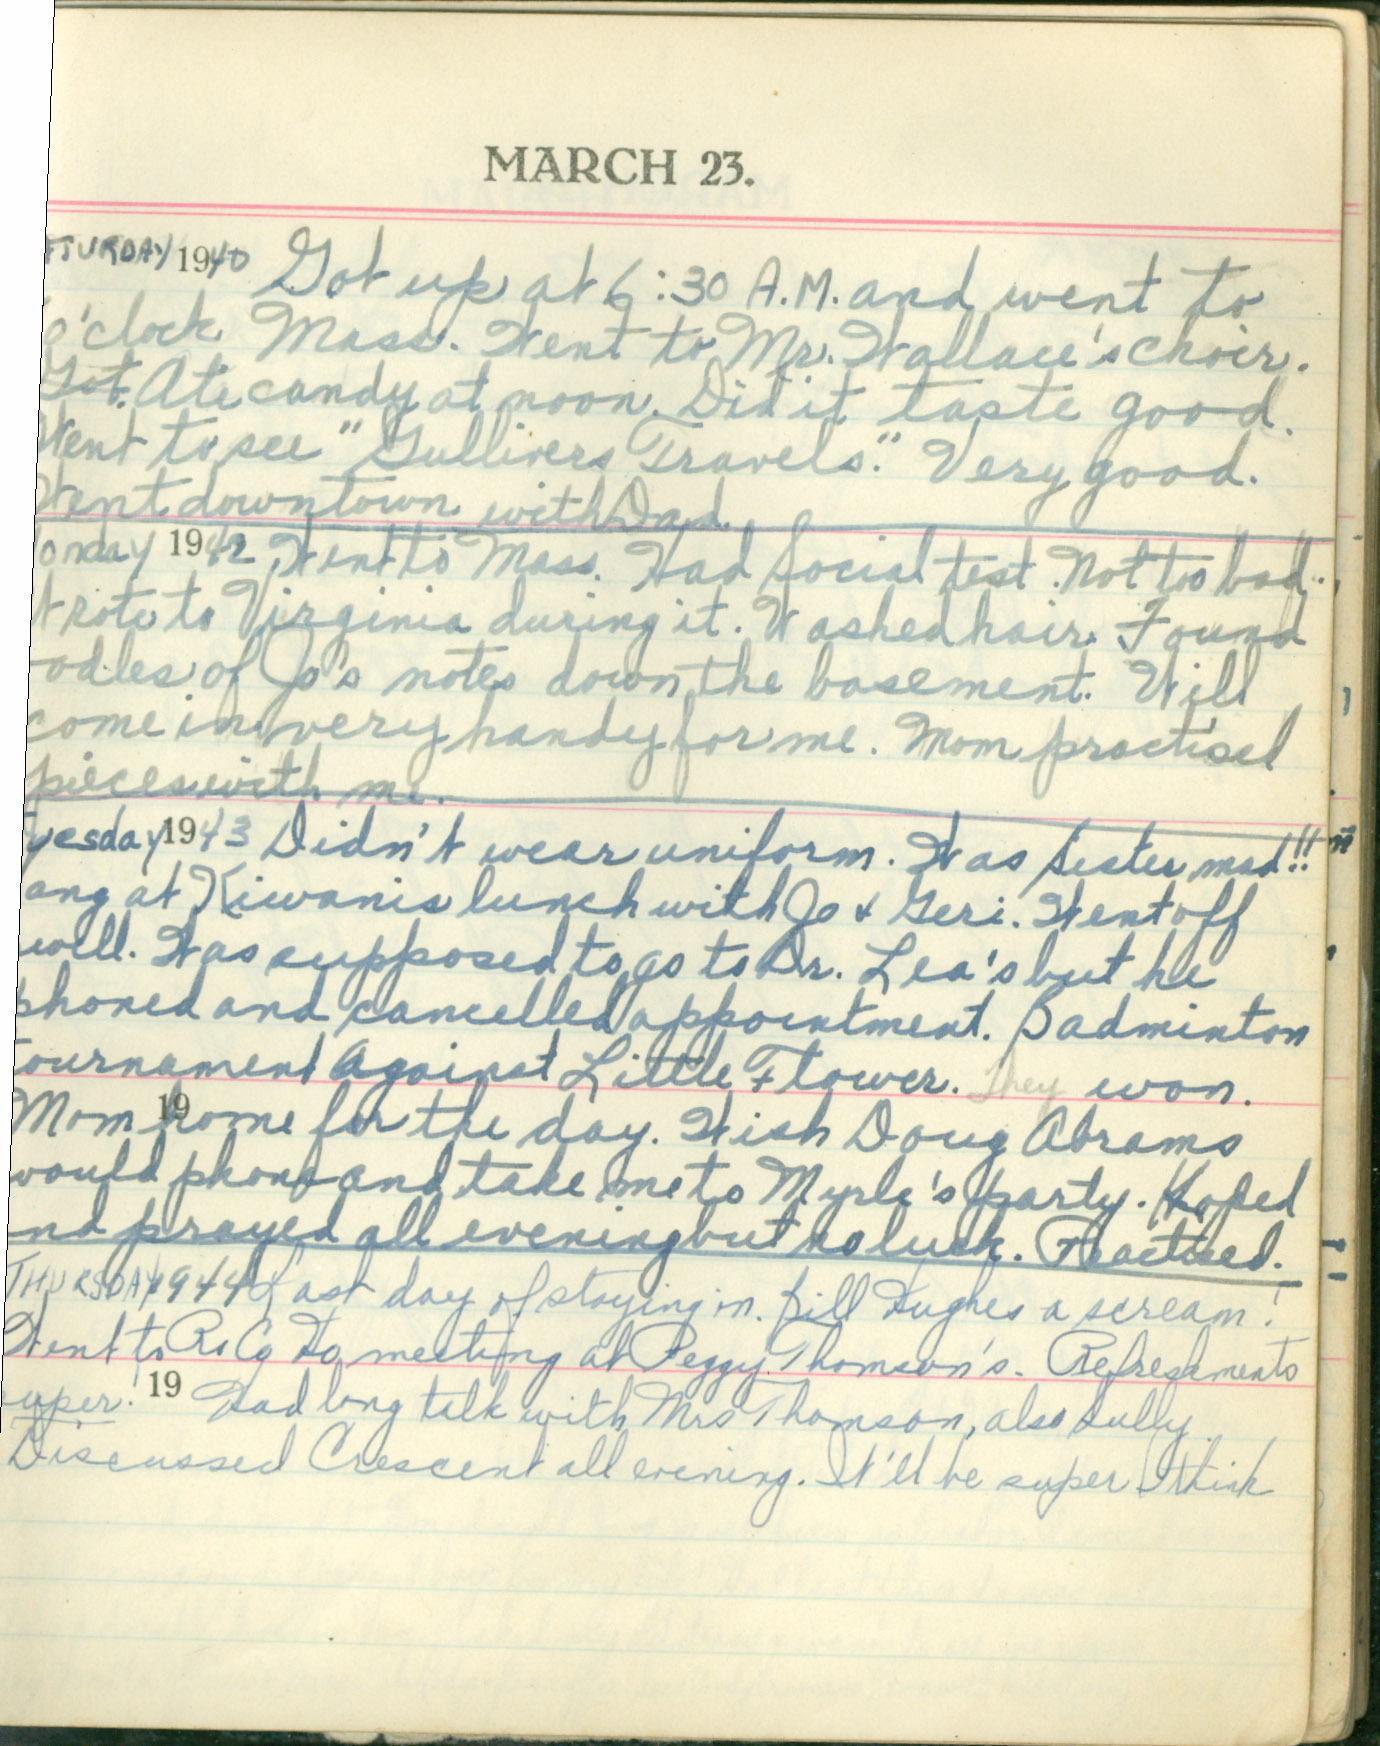 MARCH 23.
TURDAY 1940 Got up at 6:30 A.M. and went to
o'clock Mass. Went to Mr. Wallace's choir.
Got. Ate candy at noon. Did it taste good.
Went to see "Gullivers Travels." Very good.
Went downtown with Dad.
onday 1942 Went to Mass. Had Social test. Not too bad.
Wrote to Virginia during it. Washed hair. Found
odles of Jo's notes down the basement. Will
come in very handy for me. Mom practised
pieces with me.
uesday 1943 Didn't wear uniform. Was Sister mad!!
ang at Kiwanis lunch with Jo & Geri. Went off
well. Was supposed to go to Dr. Lea's but he
phoned and cancelled appointment. Badminton
tournament against Little Flower. They won.
19
Mom home for the day. Wish Doug Abrams
would phone and take me to Myrle's party. Hoped
nd prayed all evening but no luck. Practised.
THURSDAY 1944 Last day of staying in. Bill Hughes a scream!
Went to meeting at Peggy Thomson's. Refreshments
uper! 19 Had long talk with Mrs Thomson, also Sully.
Discussed Crescent all evening. It'll be super I think